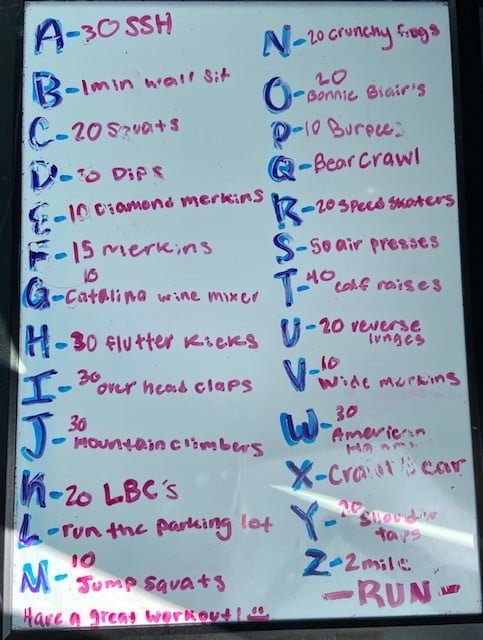 A-30 SSH
B-1min wall sit
C-20 Squats
D-30 Dips
E-10 Diamond merkins
F-15 merkins
G-10 Catalina wine mixer
H-30 flutter kicks
I-30 over head claps
J-30 mountain climbers
K-20 LBC's
L-run the parking lot
M-10 Jump squats
Have a great workout!
N-20 crunchy frogs
O-20 Bonnie Blair's
P-10 Burpees
Q-Bear Crawl
R-20 speed skaters
S-50 air presses
T-40 calf raises
U-20 reverse
lunges
V-10 Wide merkins
W-30
American
X-Crawl Bear
Y-20 Shoulder
taps
Z-2 mile
-RUN-